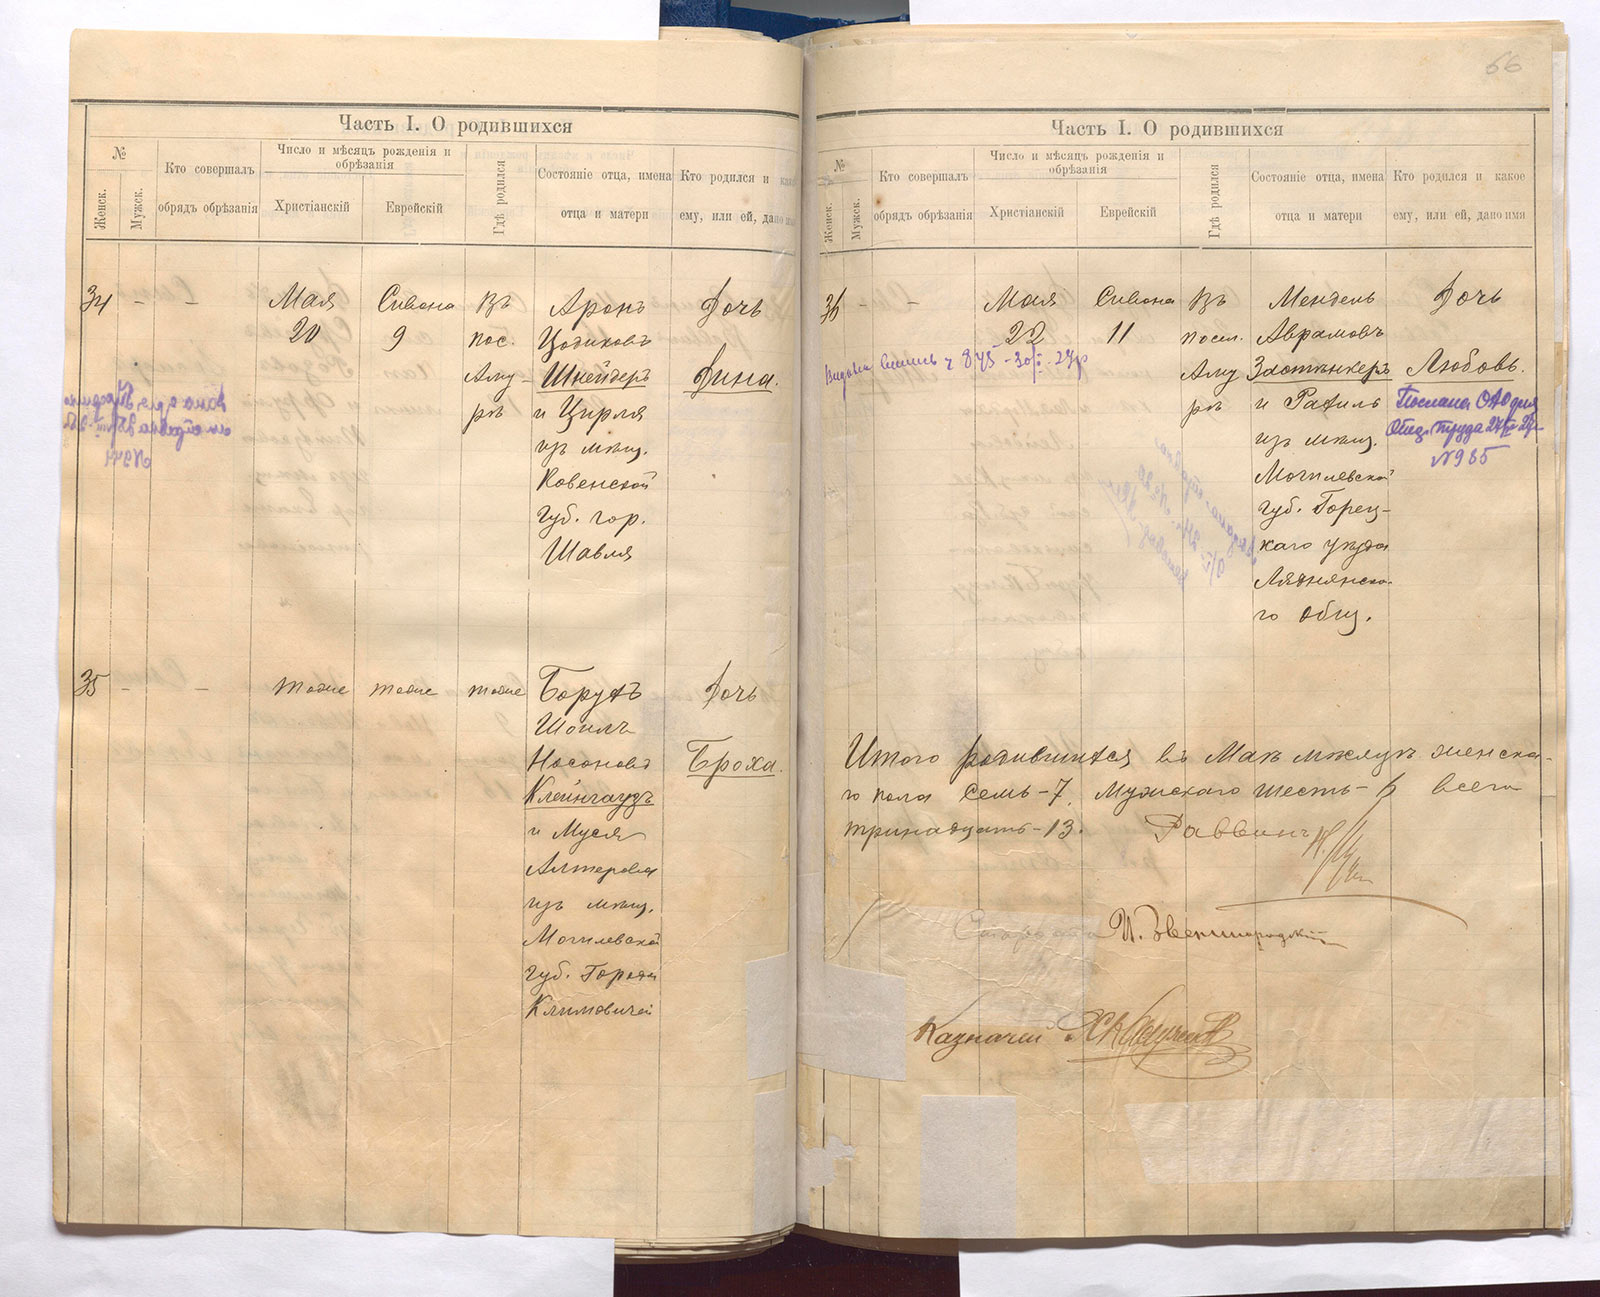 Часть I. О родившихся
№
Женск.
Мужск.
Кто совершалъ
обрядъ обрѣзанія
Число и мѣсяцъ рожденія и
обрѣзанія
Христіанскій
Еврейскій
Гдѣ родился
Состояніе отца, имена
отца и матери
Кто родился и како
ему, или ей, дано имя
34 - - Мая Сивона Въ Аронъ Дочь
20 9 пос. Цодиковъ
Аму- Шнейдеръ Дина.
ръ и Цирля
изъ мѣщ.
Ковенской
губ. гор.
Шавля
35 - - тоже тоже тоже Борухъ Дочь
Шоилъ
Носоновъ Броха.
Клейнгаузъ
и Муся
Алтерова
изъ мѣщ.
Могилевской
губ. Города
Климовичей
66
Часть I. О родившихся
№
Женск.
Мужск.
Кто совершалъ
обрядъ обрѣзанія
Число и мѣсяцъ рожденія и
обрѣзанія
Христіанскій
Еврейскій
Гдѣ родился
Состояніе отца, имена
отца и матери
Кто родился и какое
ему, или ей, дано имя
36 - - Мая Сивона Въ Мендель Дочь
22 11 посел. Аврамовъ
Аму Злотънкеръ Любовь.
ръ и Рахиль
изъ мѣщ.
Могилевской
губ. Горец-
каго уѣзда
Ляднянска-
го общ.
№985
Итого родившихся въ Маѣ мѣсяцѣ женска-
го пола семь-7, Мужскаго шесть-6 всего
тринадцать-13. Раввинъ
Староста И. Звенигородскій
Казначей